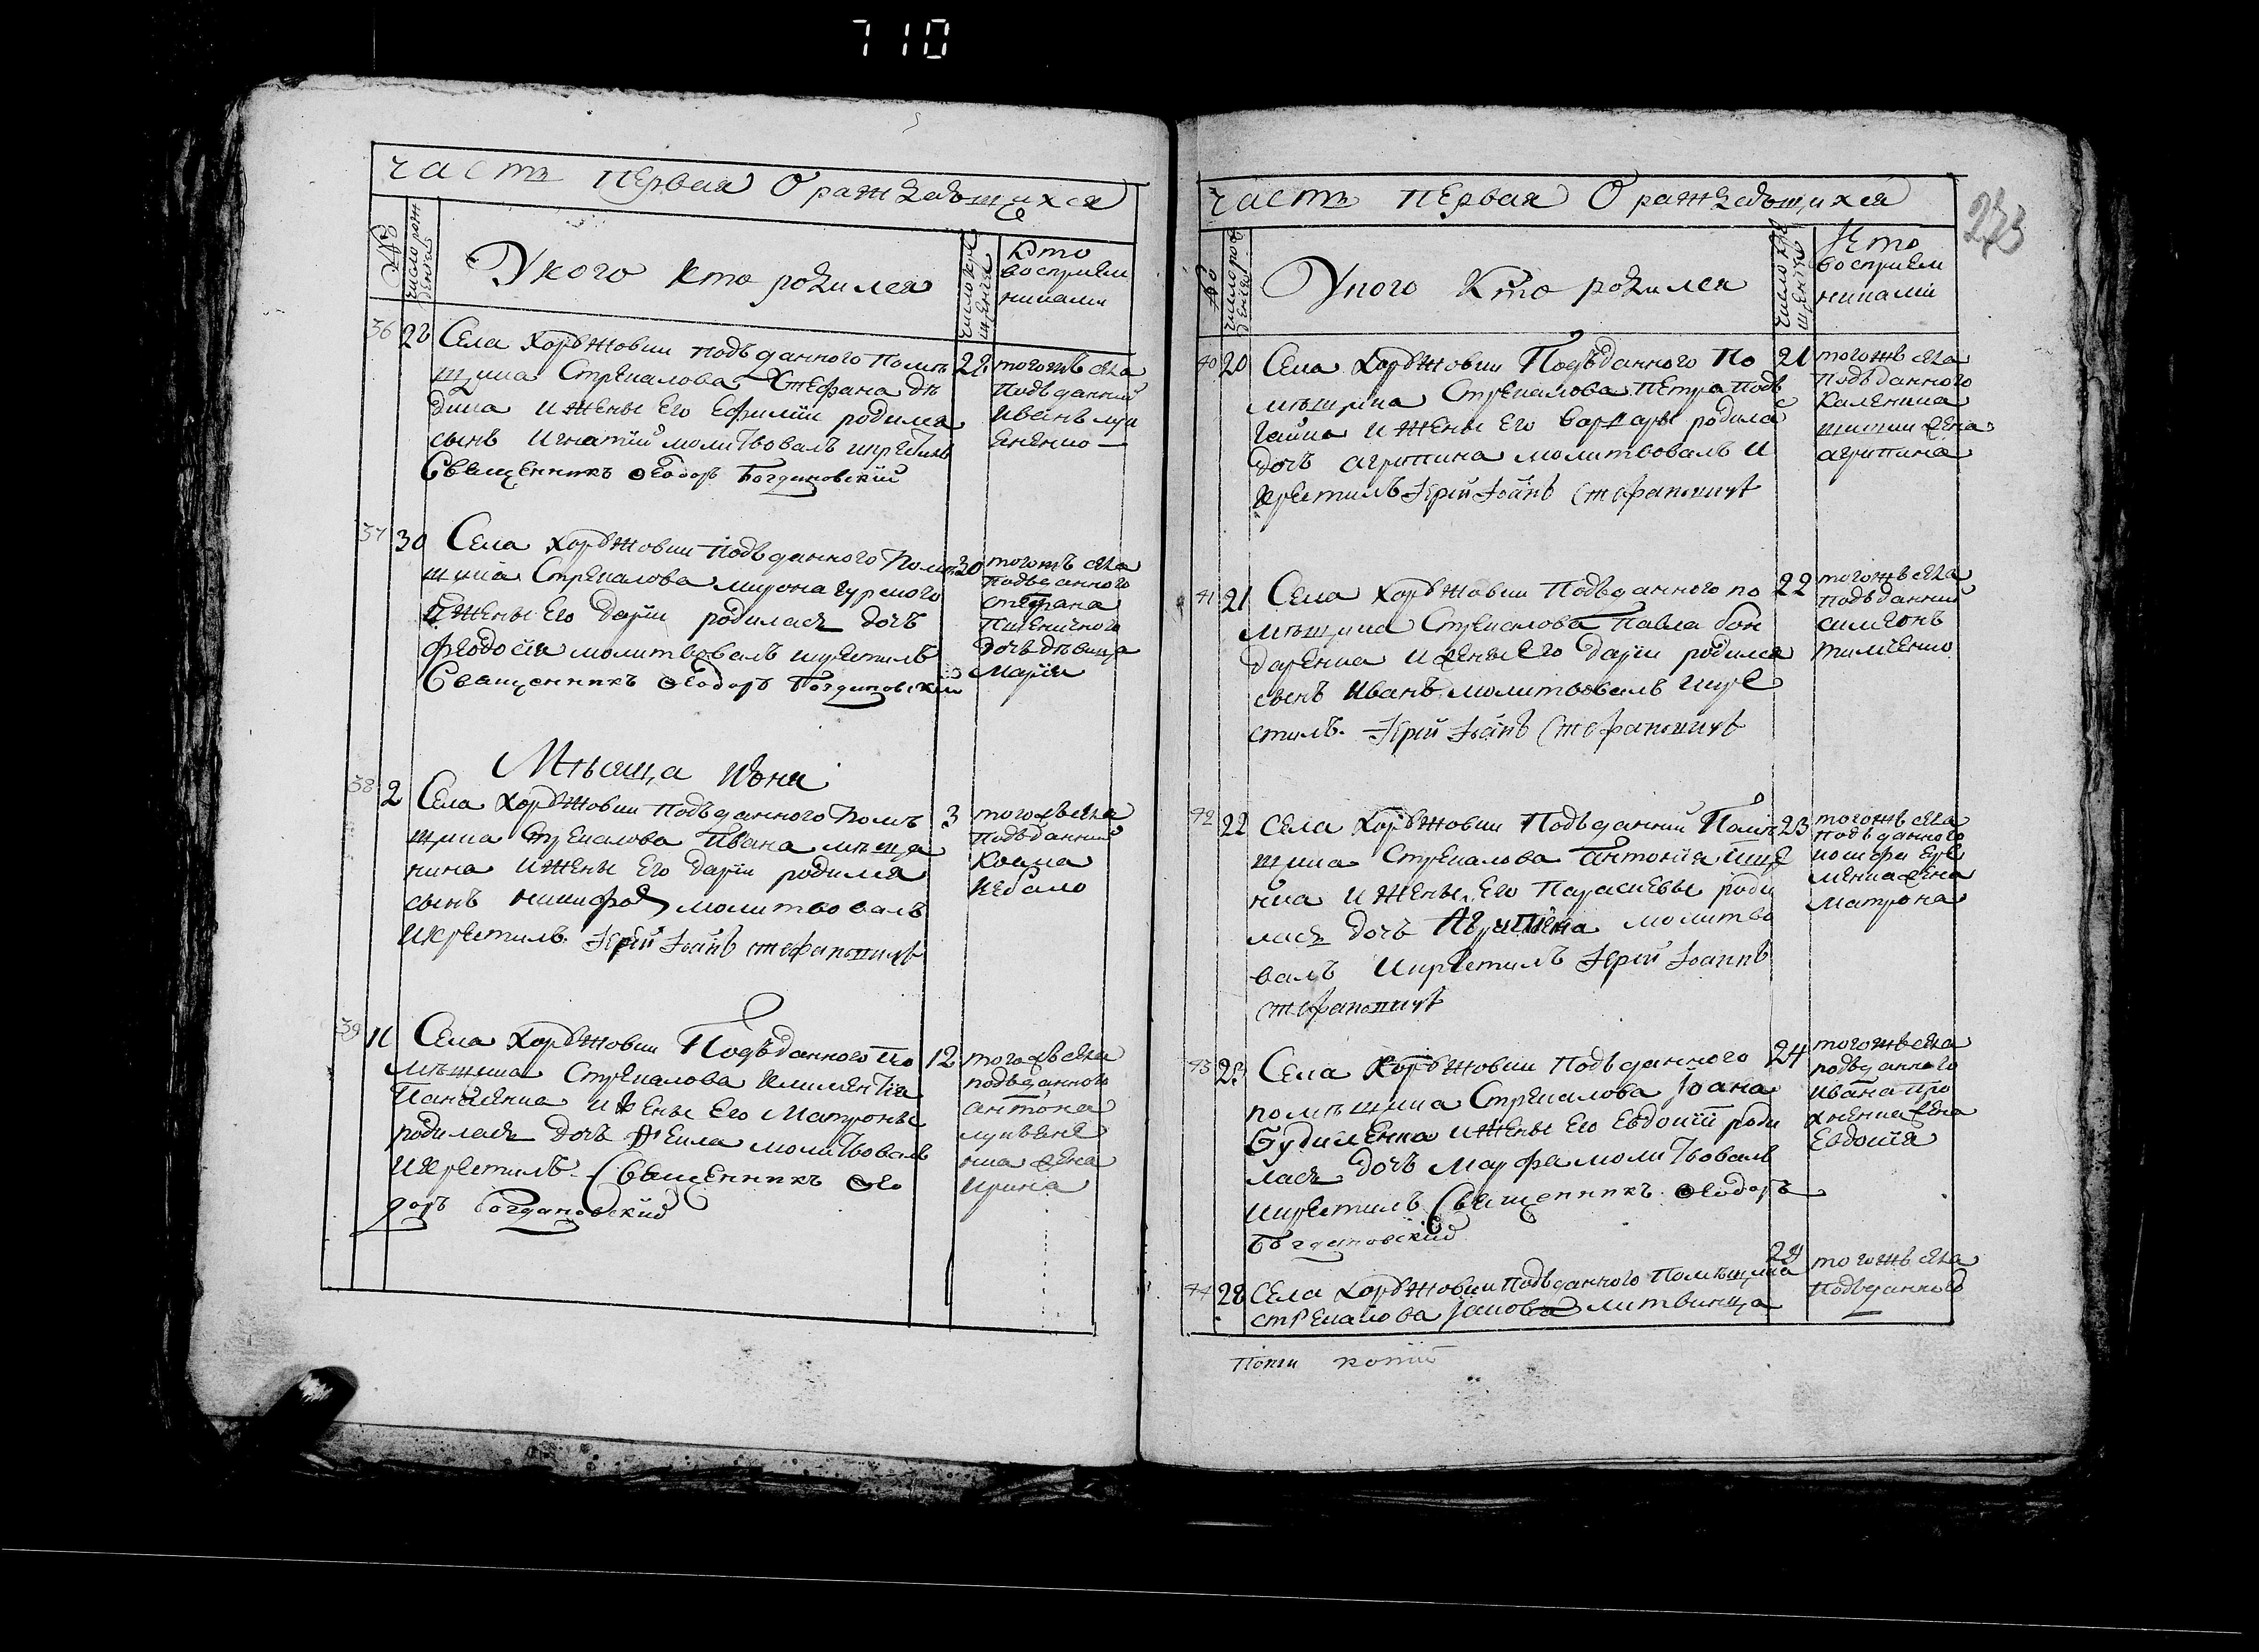 710
часть первая О раждающихся
№
число рож
дения
У кого кто родился
число кре
щения
Кто
восприем
никами
36 22 Села Хоружовки подъданного помѣ 22
щика Стрекалова Стефана дѣ
дика и жены его Ефимии родился
сынъ Игнатїй молитвовалъ и крестилъ
Священникъ Ѳеодоръ Богдановский
тогожъ села
подъданний
Иванъ луц
ененко
37 30 Села Хоружовки подъданного помѣ 30
щика Стрекалова мирона гурского
и жены его Дарїи родилася дочъ
феодосїя молитвовалъ и крестилъ
Священникъ Ѳеодоръ Богдановский
тогожъ села
подъданного
стефана
пшеничного
дочъ дѣвица
Марїя
Мѣсяца Июня
38 2 Села Хоружовки подъданного помѣ 3
щика Стрекалова Ивана мѣща
нина и жены его Дарїи родился
сынъ никифоръ молитвовалъ
и крестилъ Иерей Иоанъ Стефановичъ
тогожъ села
подъданний
Козма
кебало
39 11 Села Хоружовки Подъданного по 12
мѣщика Стрекалова Климентїя
и жены его Матроны
родилася дочъ молитвовалъ
и крестилъ Священникъ Ѳео
доръ Богдановский
тогожъ села
подъданного
антона
жена
Ирина
часть первая О раждающихся
273
№
число рож
дения
У кого Кто родился
число кре
щения
Кто
восприем
никами
40 20 Села Хоружовки Подъданного По 21
мѣщика Стрекалова Петра Подъ
гайка и жены его варвары родилас
дочъ агрипина молитвовалъ и
крестилъ Иерей Иоанъ Стефановичъ
тогожъ села
подъданного
Каленика
жена
агрипина
41 21 Села Хоружовки Подъданного по 22
мѣщика Стрекалова Павла бон
даренка и жены его Дарїи родился
сынъ Иванъ молитвовалъ и кре
стилъ Иерей Иоанъ Стефановичъ
тогожъ села
подъданний
симеонъ
тимченко
42 22 Села Хоружовки Подъданний Помѣ 23
щика Стрекалова Антонїя
нка и жены его Параскевы роди
лася дочъ Агрипена молитво
валъ и крестилъ Иерей Иоаннъ
Стефановичъ
тогожъ села
подъданного
иосифа ере
менка жена
Матрона
43 23 Села Хоружовки подъданного 24
помѣщика Стрекалова Иоана
Будиленка и жены его Евдокїи роди
лася дочъ Марфа молитвовалъ
и крестилъ Священникъ Ѳеодоръ
Богдановский
тогожъ села
подъданного
Ивана про
хненка жена
Евдокїя
44 28 Села Хоружовки подъданного помѣщика 29
стрекалова Іакова литвинца
тогожъ села
подъданного